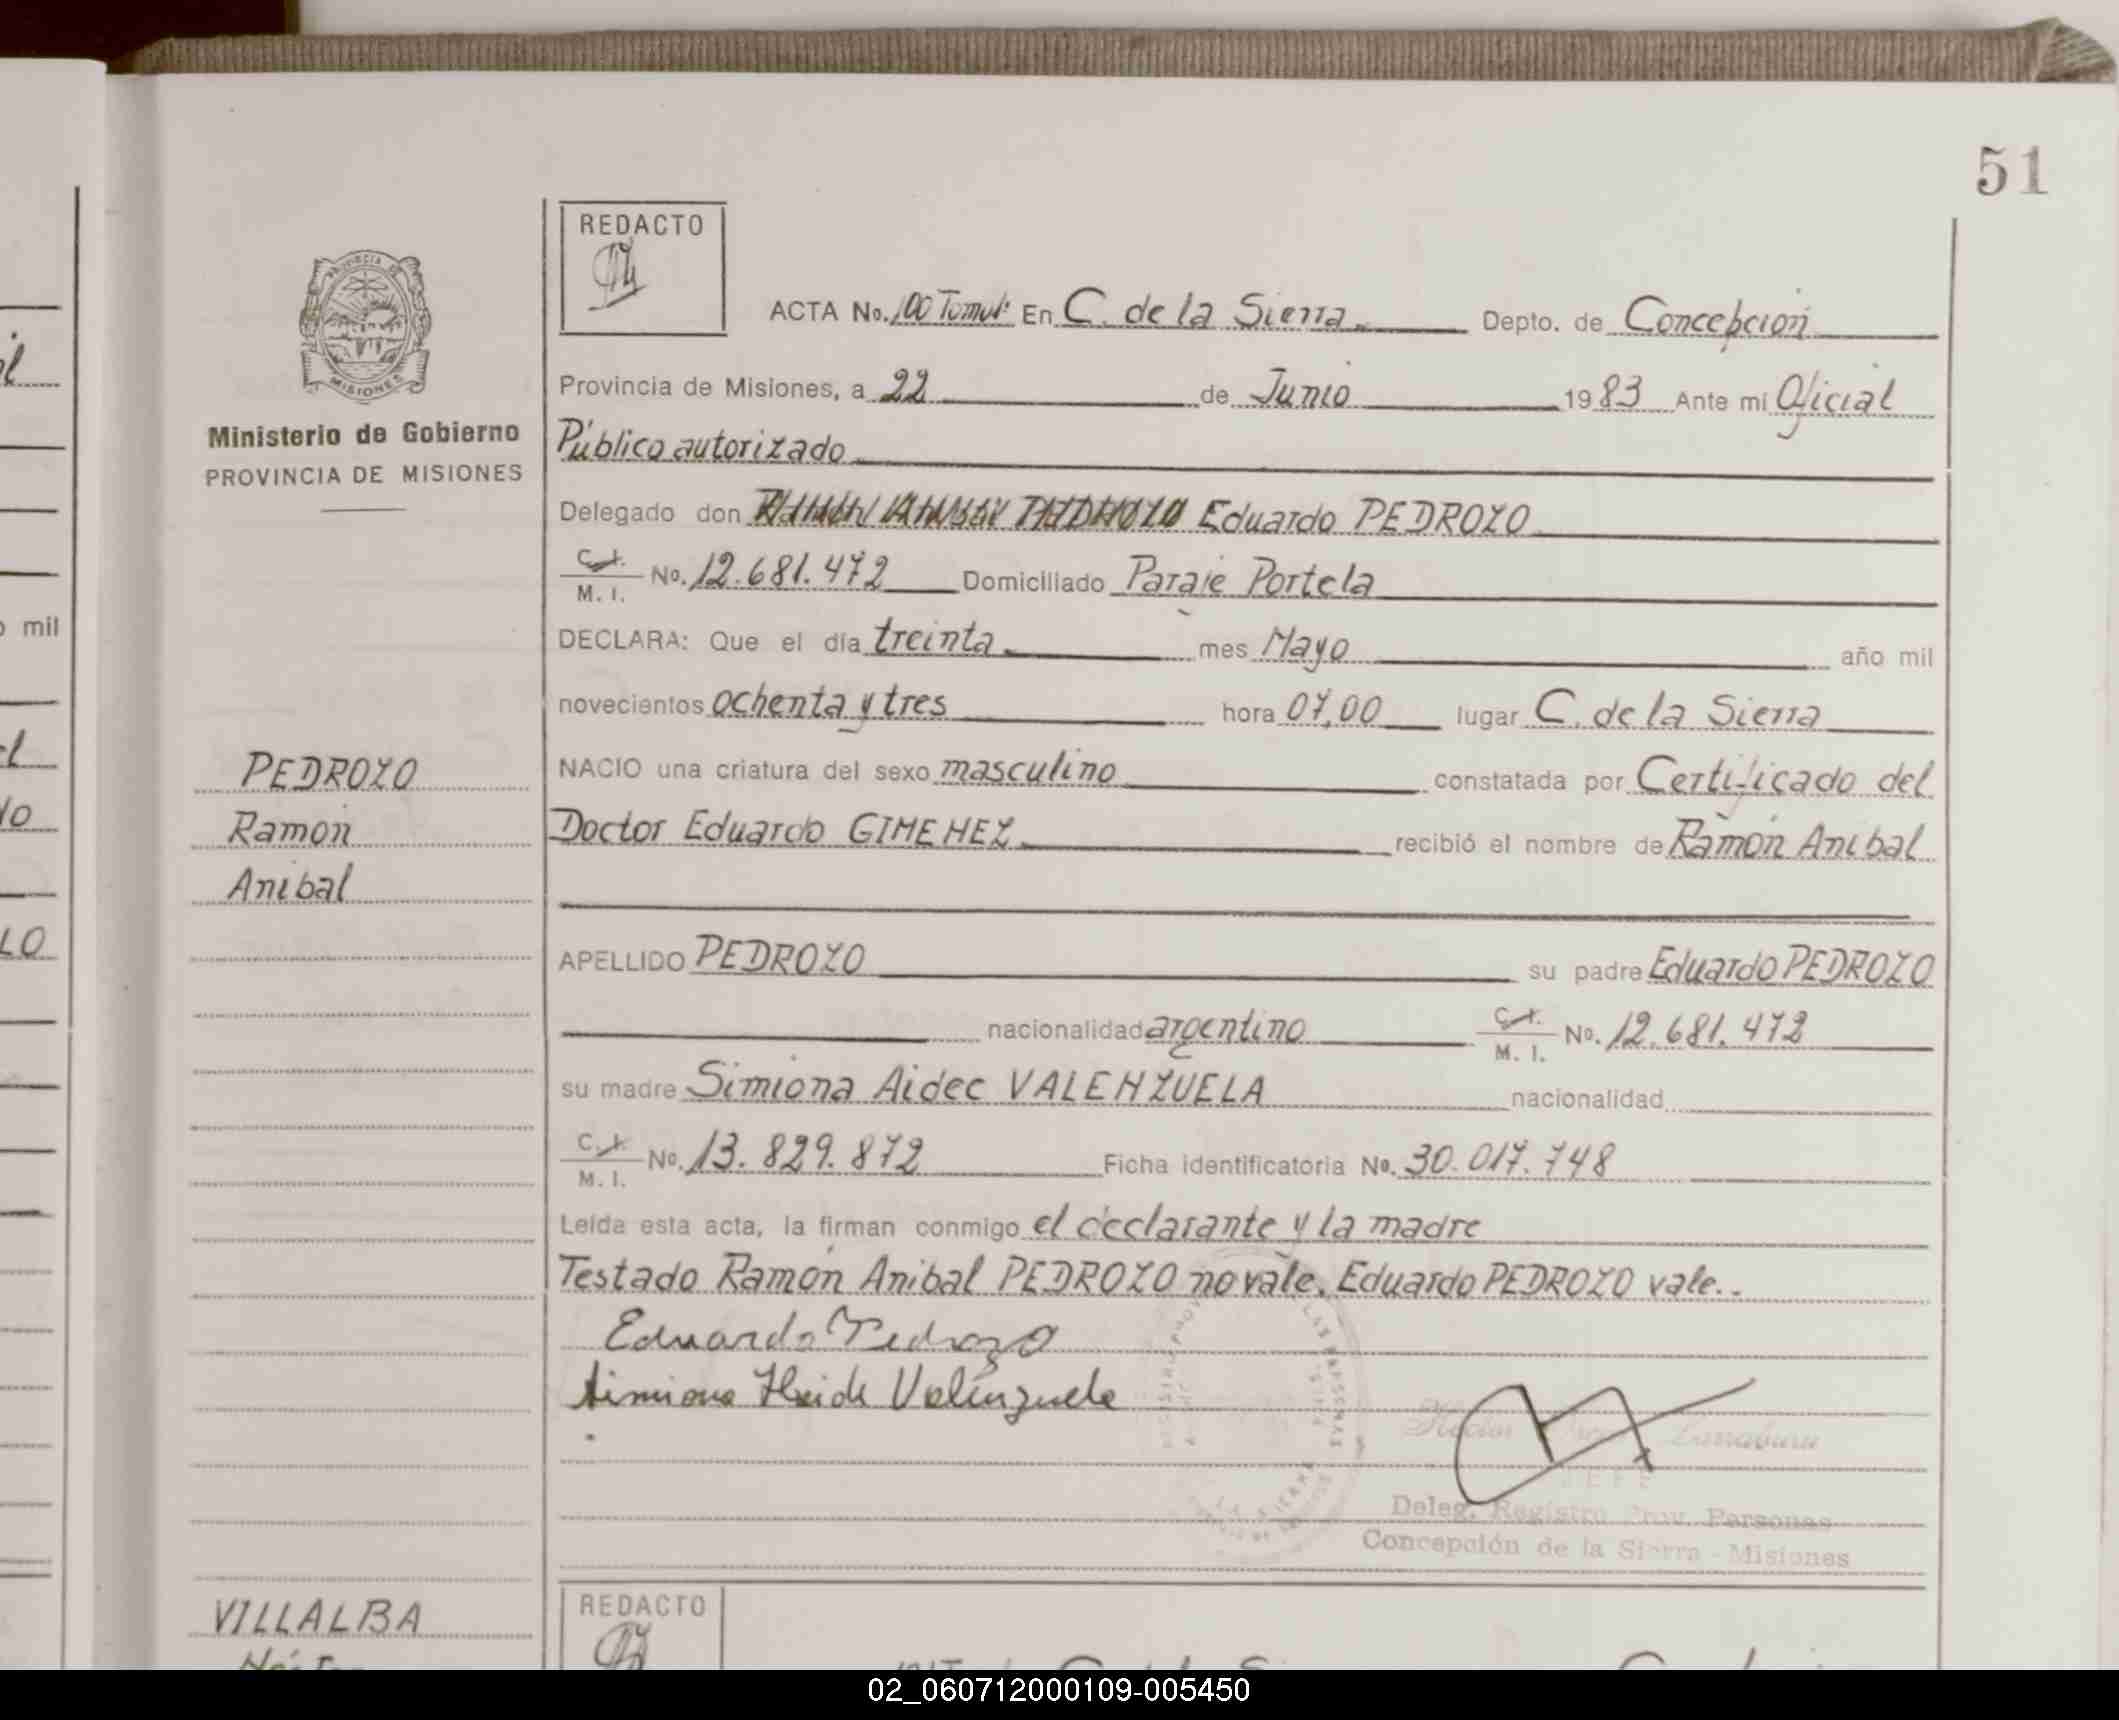 51
REDACTO
PROVINCIA DE
MISIONES
Ministerio de Gobierno
PROVINCIA DE MISIONES
ACTA No. 100 En C. de la Sierra Depto. de Concepción
Provincia de Misiones, a 22 de Junio 1983 Ante mi Oficial
Público autorizado
Delegado don Ramón Anibal PEDROZO Eduardo PEDROZO
C.I. M. I. No. 12.681.472 Domiciliado Paraje Portela
DECLARA: Que el día treinta mes Mayo año mil
novecientos ochenta y tres hora 07,00 lugar C. de la Sierra
NACIO una criatura del sexo masculino constatada por Certificado del
Doctor Eduardo GIMENEZ recibió el nombre de Ramón Anibal
APELLIDO PEDROZO su padre Eduardo PEDROZO
nacionalidad argentino C.I. M. I. No. 12.681.472
su madre Simiona Aidee VALENZUELA nacionalidad
C.I. M. I. No. 13.829.872 Ficha identificatoria No. 30.017.748
Leída esta acta, la firman conmigo el declarante y la madre
Testado Ramón Anibal PEDROZO no vale. Eduardo PEDROZO vale..
Eduardo Pedrozo
Simiona Valenzuela
JEFE
Deleg. Registro Prov. Personas
Concepción de la Sierra - Misiones
PEDROZO
Ramón
Anibal
VILLALBA
REDACTO
o mil
02_060712000109-005450